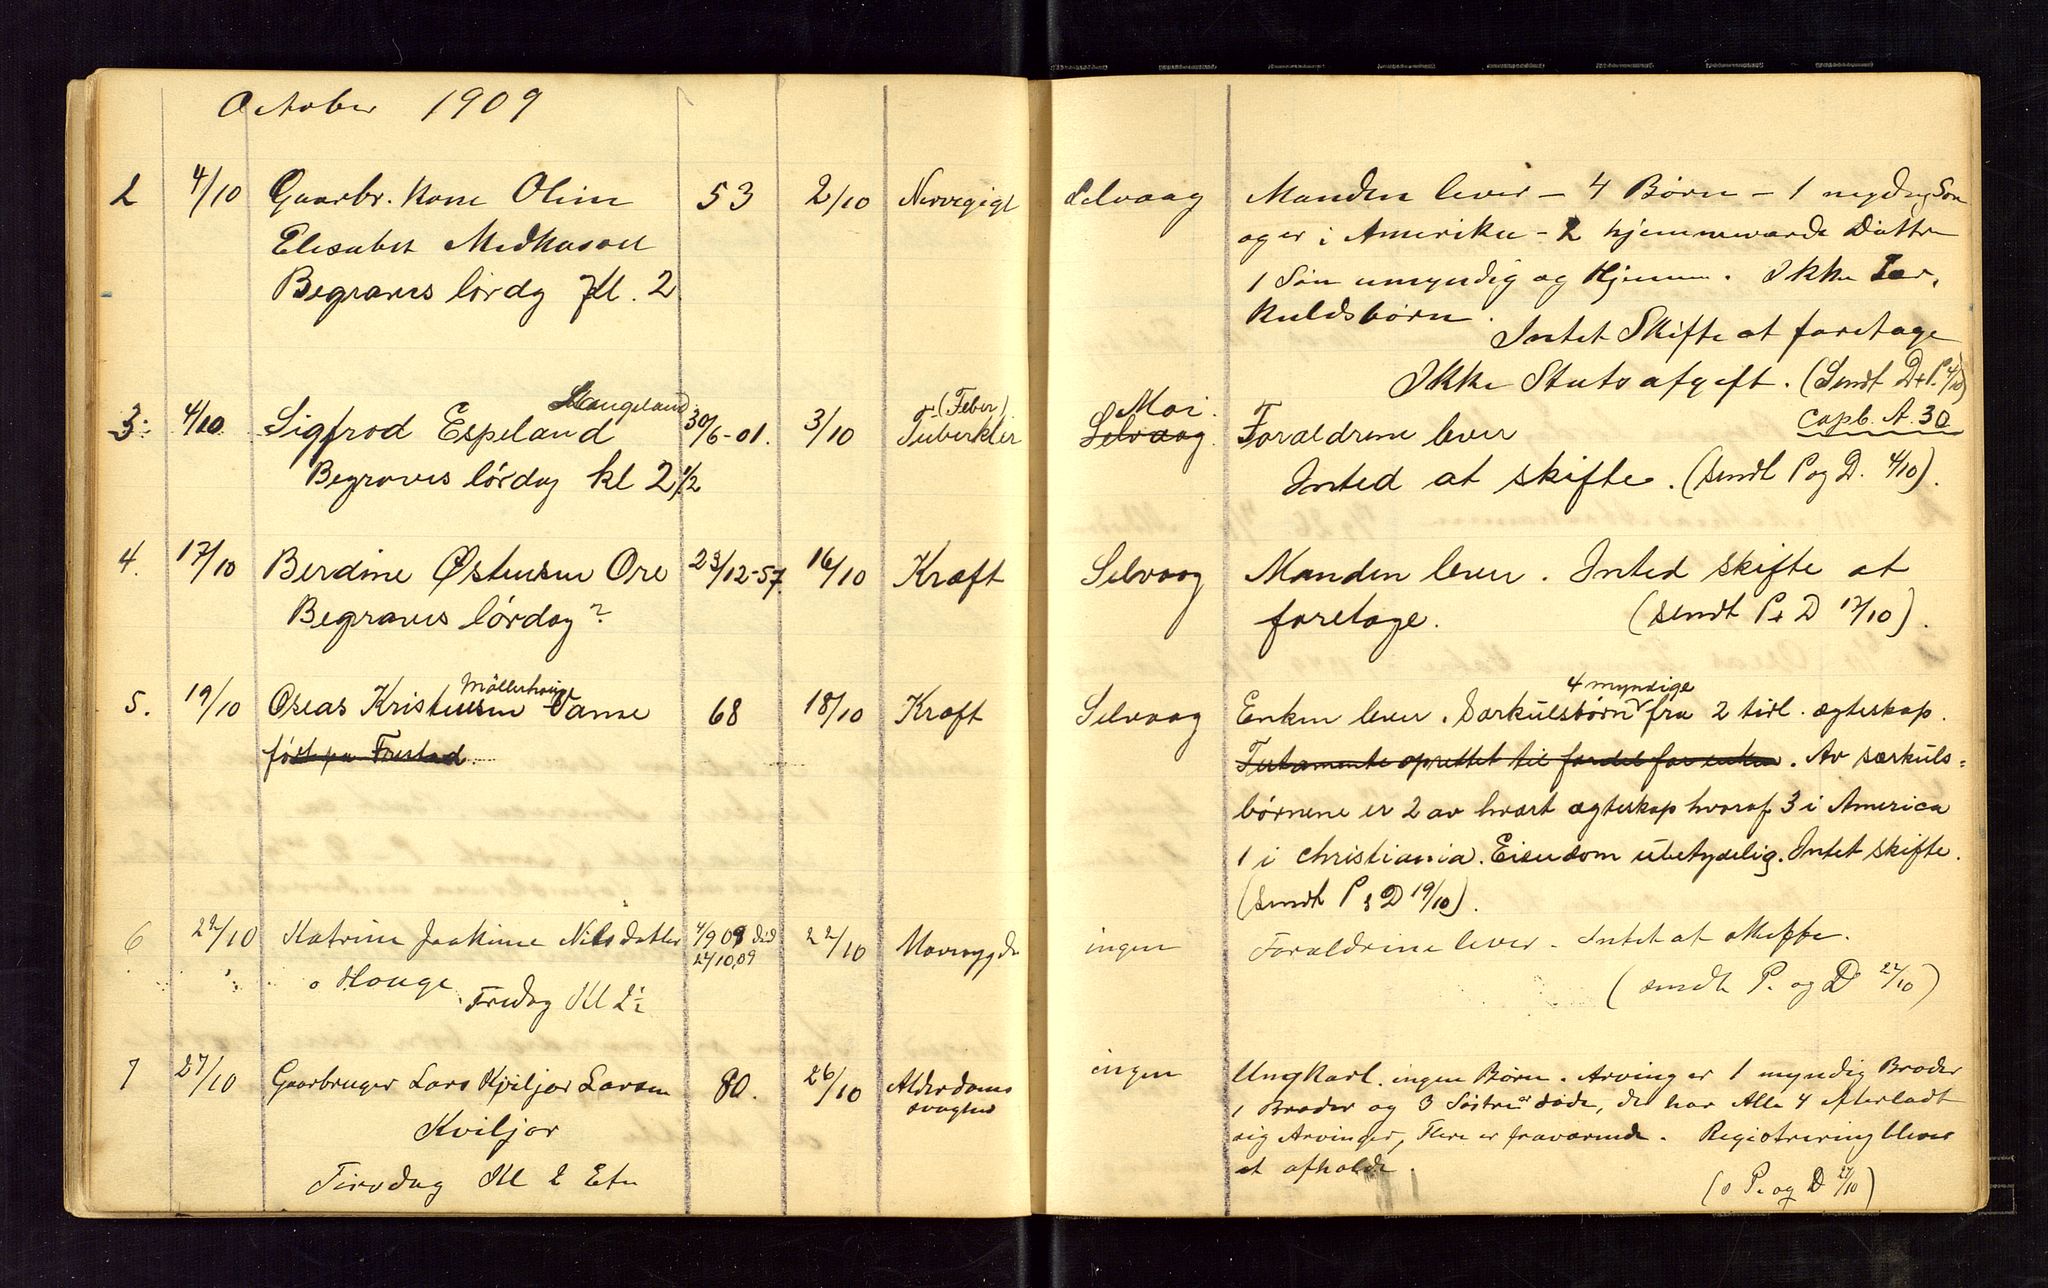 October 1909
2 4/10 Gaarbr. Kone Oline 53 2/10 Selvaag Manden lever - 4 Børn - 1 myndig Søn
Elisabet og er i Amerika - 2 hjemmeværende Døttre
Begraves lørdg Kl. 2 1 Søn umyndig og Hjemme. Ikke Sær-
kuldsbørn.
Intet Skifte at foretage
Ikke Statsafgift. (Sendt D + P. 4/10)
Stangeland (Feber) Moi. Capb. A. 30
3. 4/10 Sigfrod Espeland 30/6-01. 3/10 Tuberkler Selvaag. Forældrene lever
Begraves lørdag kl 2 1/2 Inted at skifte. (sendt P og D. 4/10).
4. 17/10 Berdine Østensen Ore 23/12-57. 16/10 Kræft Selvaag Manden lever. Inted skifte at
Begraves lørdag? foretage. (sendt P + D 17/10).
Møllerhauge 4 myndige
5. 19/10 Oseas Kristensen Vanse 68 18/10 Kræft Selvaag Enken lever. Særkulsbørn fra 2 tidl. ægteskap.
født på Frestad. Testamente oprettet til fordel for enken. Av særkuls=
børnene er 2 av hvært ægteskap hvoraf 3 i America
1 i Christiania. Eiendom ubetydelig. Intet skifte.
(sendt P & D 19/10).
6 22/10 Katrine Joakime Nilsdatter 4/9 09 død 22/10 ingen Forældrene lever. Intet at skifte.
Houge 22/10,09
Fredag Kl 2 1/2 (sendt P. og D 22/10)
7 27/10 Gaarbruger Lars Kviljor Larsen 80. 26/10 Alderdoms ingen Ungkarl. ingen Børn. Arving er 1 myndig Broder
svaghed 1 Broder og 3 Søstre er døde, de har Alle 4 efterladt
Kviljor sig Arvinger, Flere er fraværende. Registrering bliver
Tirsdag Kl 2 Etm at afholde.
(s P. og D 27/10)